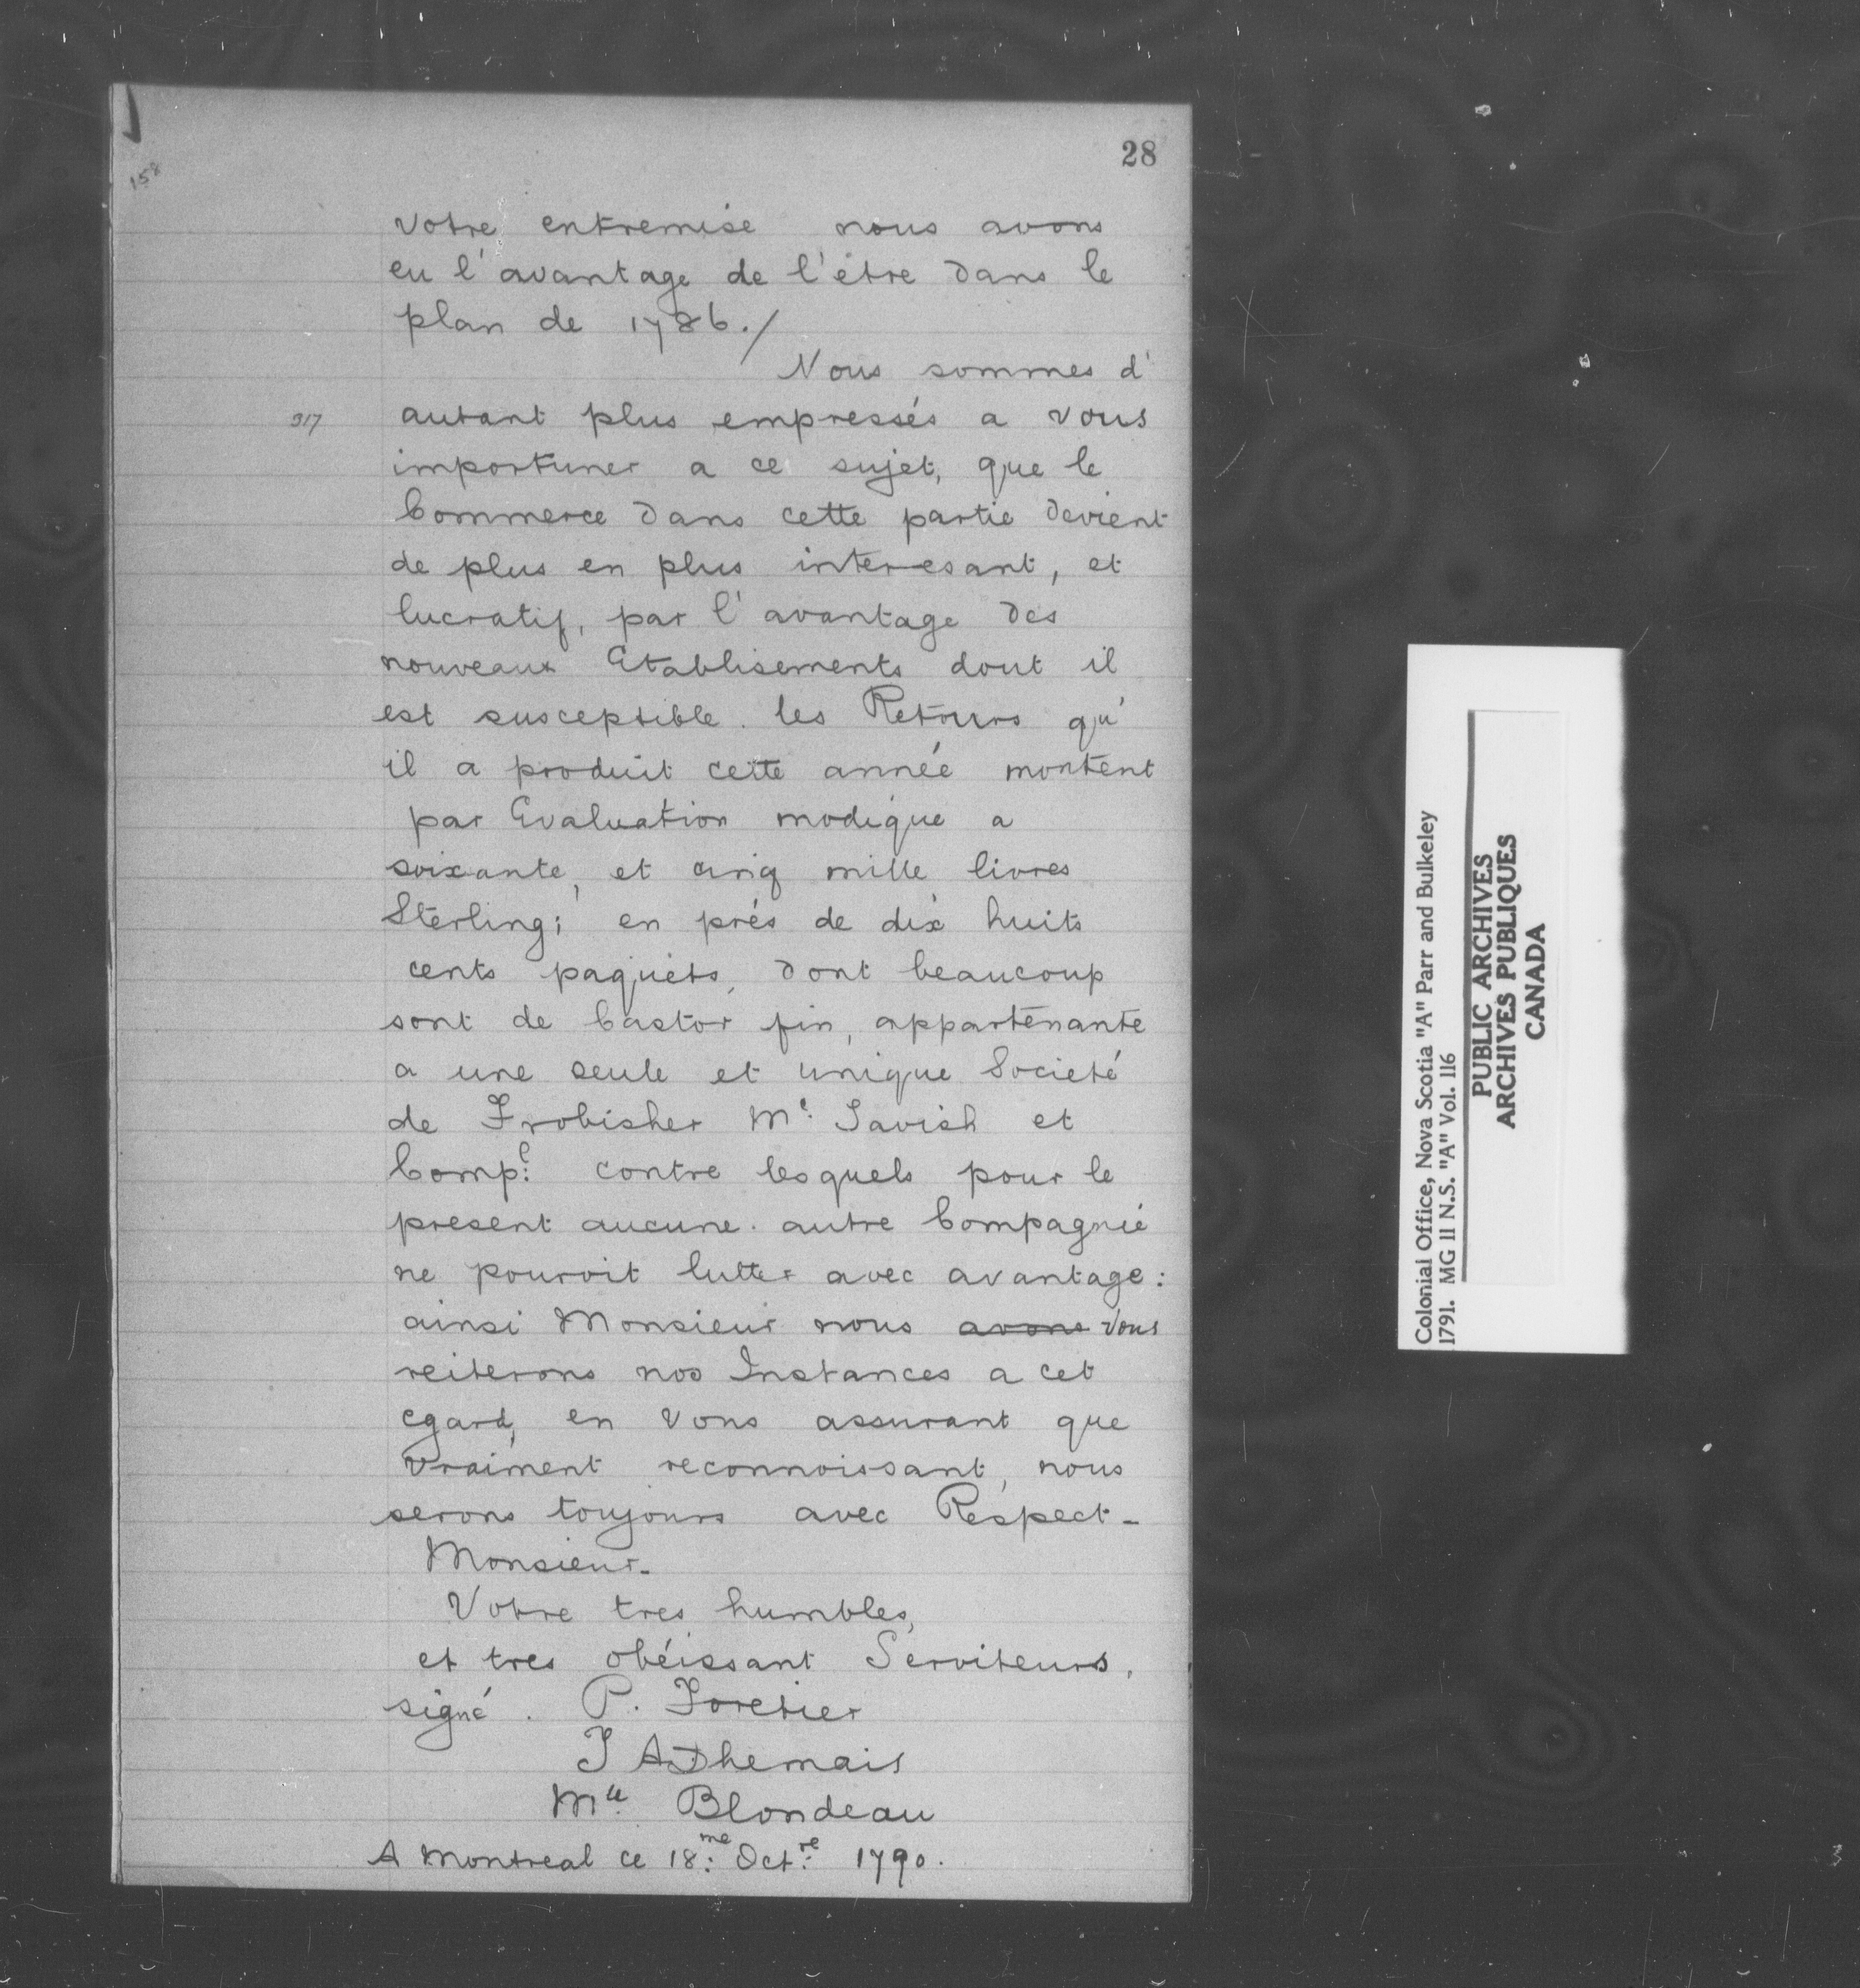 28
158
votre entremise nous avons
eu l'avantage de l'être dans le
plan de 1786./
Nous sommes d'
917
autant plus empressés a vous
importuner a ce sujet, que le
Commerce dans cette partie devient
de plus en plus interesant, et
lucratif, par l'avantage des
nouveaux Etablisements dout il
est susceptible. les Retours qu'
il a produit cette année montent
par Evaluation modique a
soixante, et cinq mille livres
Sterling; en prés de dix huits
cents paquets, dont beaucoup
sont de Castor fin, appartenante
a une seule et unique Societé
de Frobisher Mc. Tavish et
Compe: contre lesquels pour le
present aucune. autre Compagnie
ne pouroit lutter avec avantage:
ainsi Monsieur nous avons vous
reiterons nos Instances a cet
egard, en vous assurant que
vraiment reconnoissant, nous
serons toujours avec Respect-
Monsieur-
Votre tres humbles,
et tres obéissant Serviteurs.
signé. P. Foretier
J A Dhemais
Mce. Blondeau
A Montreal ce 18:me Oct:re 1790.
Colonial Office, Nova Scotia "A" Parr and Bulkeley
1791. MG 11 N.S. "A" Vol. 116
PUBLIC ARCHIVES
ARCHIVES PUBLIQUES
CANADA